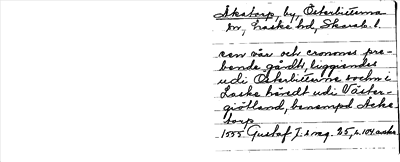 Akatorp, by, Österbitterna
sn, Laske hd, Skarab. l.
een vår och cronones pre-
bende gårdt, liggiendes
udi Österbitterne sochn i
Laske häredt udi Väster-
giötland, benempd Acke-
torp
1555 Gustaf I:s reg. 25, s. 104